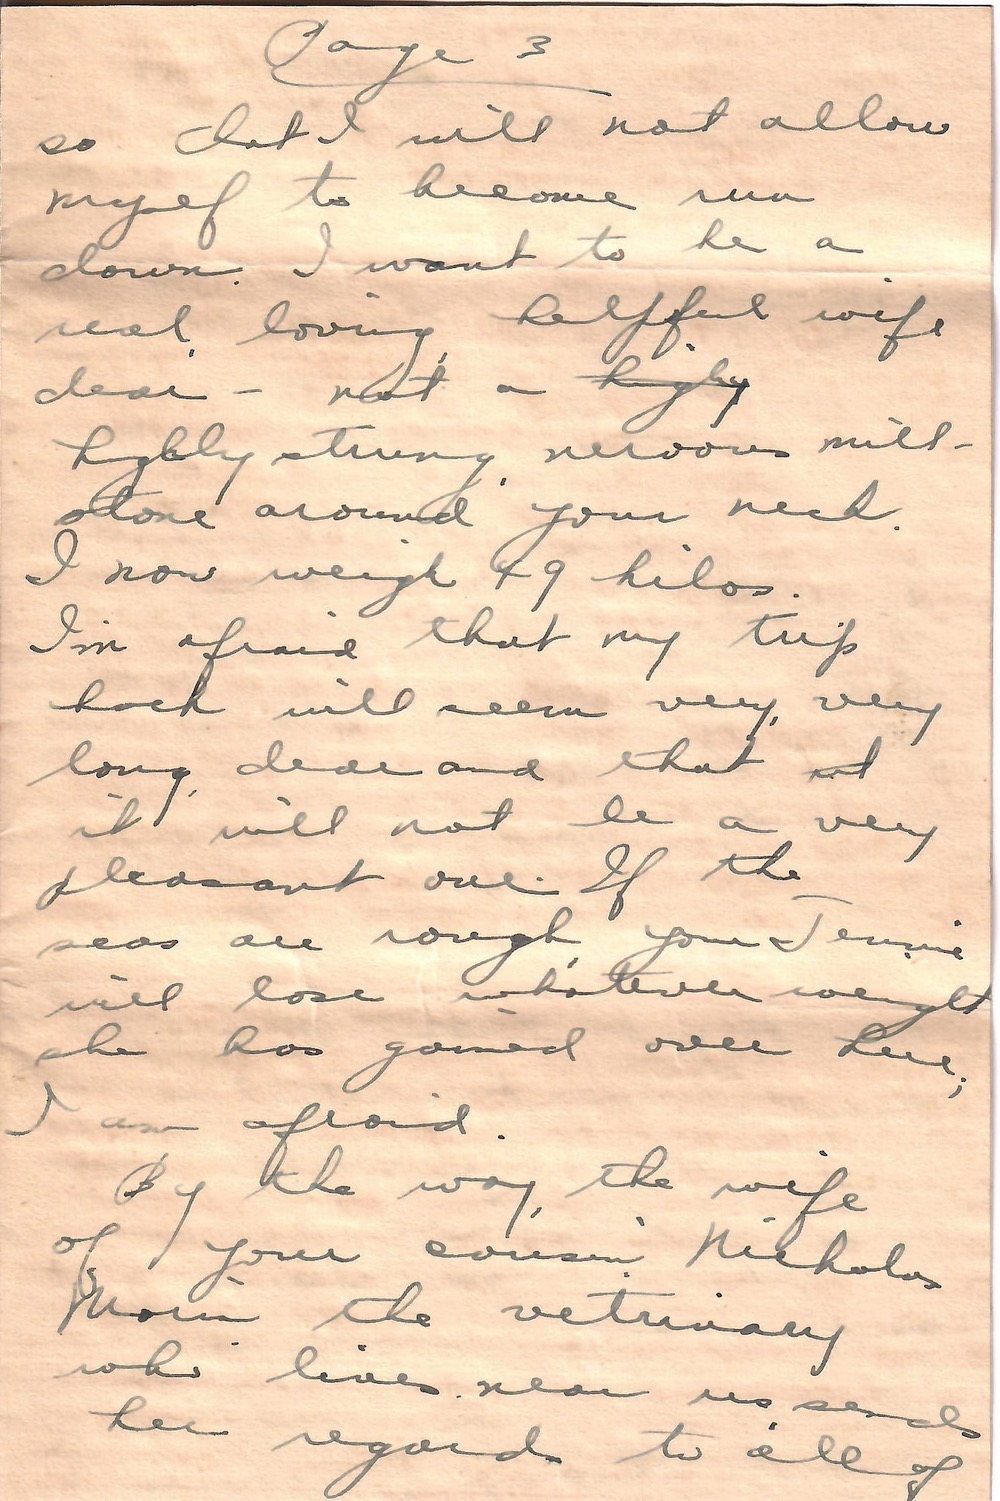 Page 3
so that I will not allow
myself to become run
down. I want to be a
real, loving, helpful wife
dear - not a higly
highly strung, nervous mill-
stone around your neck.
I now weigh 49 kilos.
I'm afraid that my trip
back will seem very, very
long, dear and that it
it will not be a very
pleasant one. If the
seas are rough, your Jennie
will lose whatever weight
she has gained over here,
I am afraid.
By the way, the wife
of your cousin Nicholas
Morin the vetrinary
who lives near us sends
her regards to all of